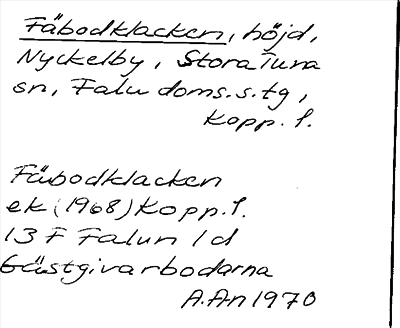 Fäbodklacken, höjd,
Nyckelby, Stora Tuna
sn, Falu doms.s.tg,
Kopp. l.
Fäbodklacken
ek (1968) Kopp. l.
13 F Falun 1 d
Gästgivarbodarna
A.An 1970